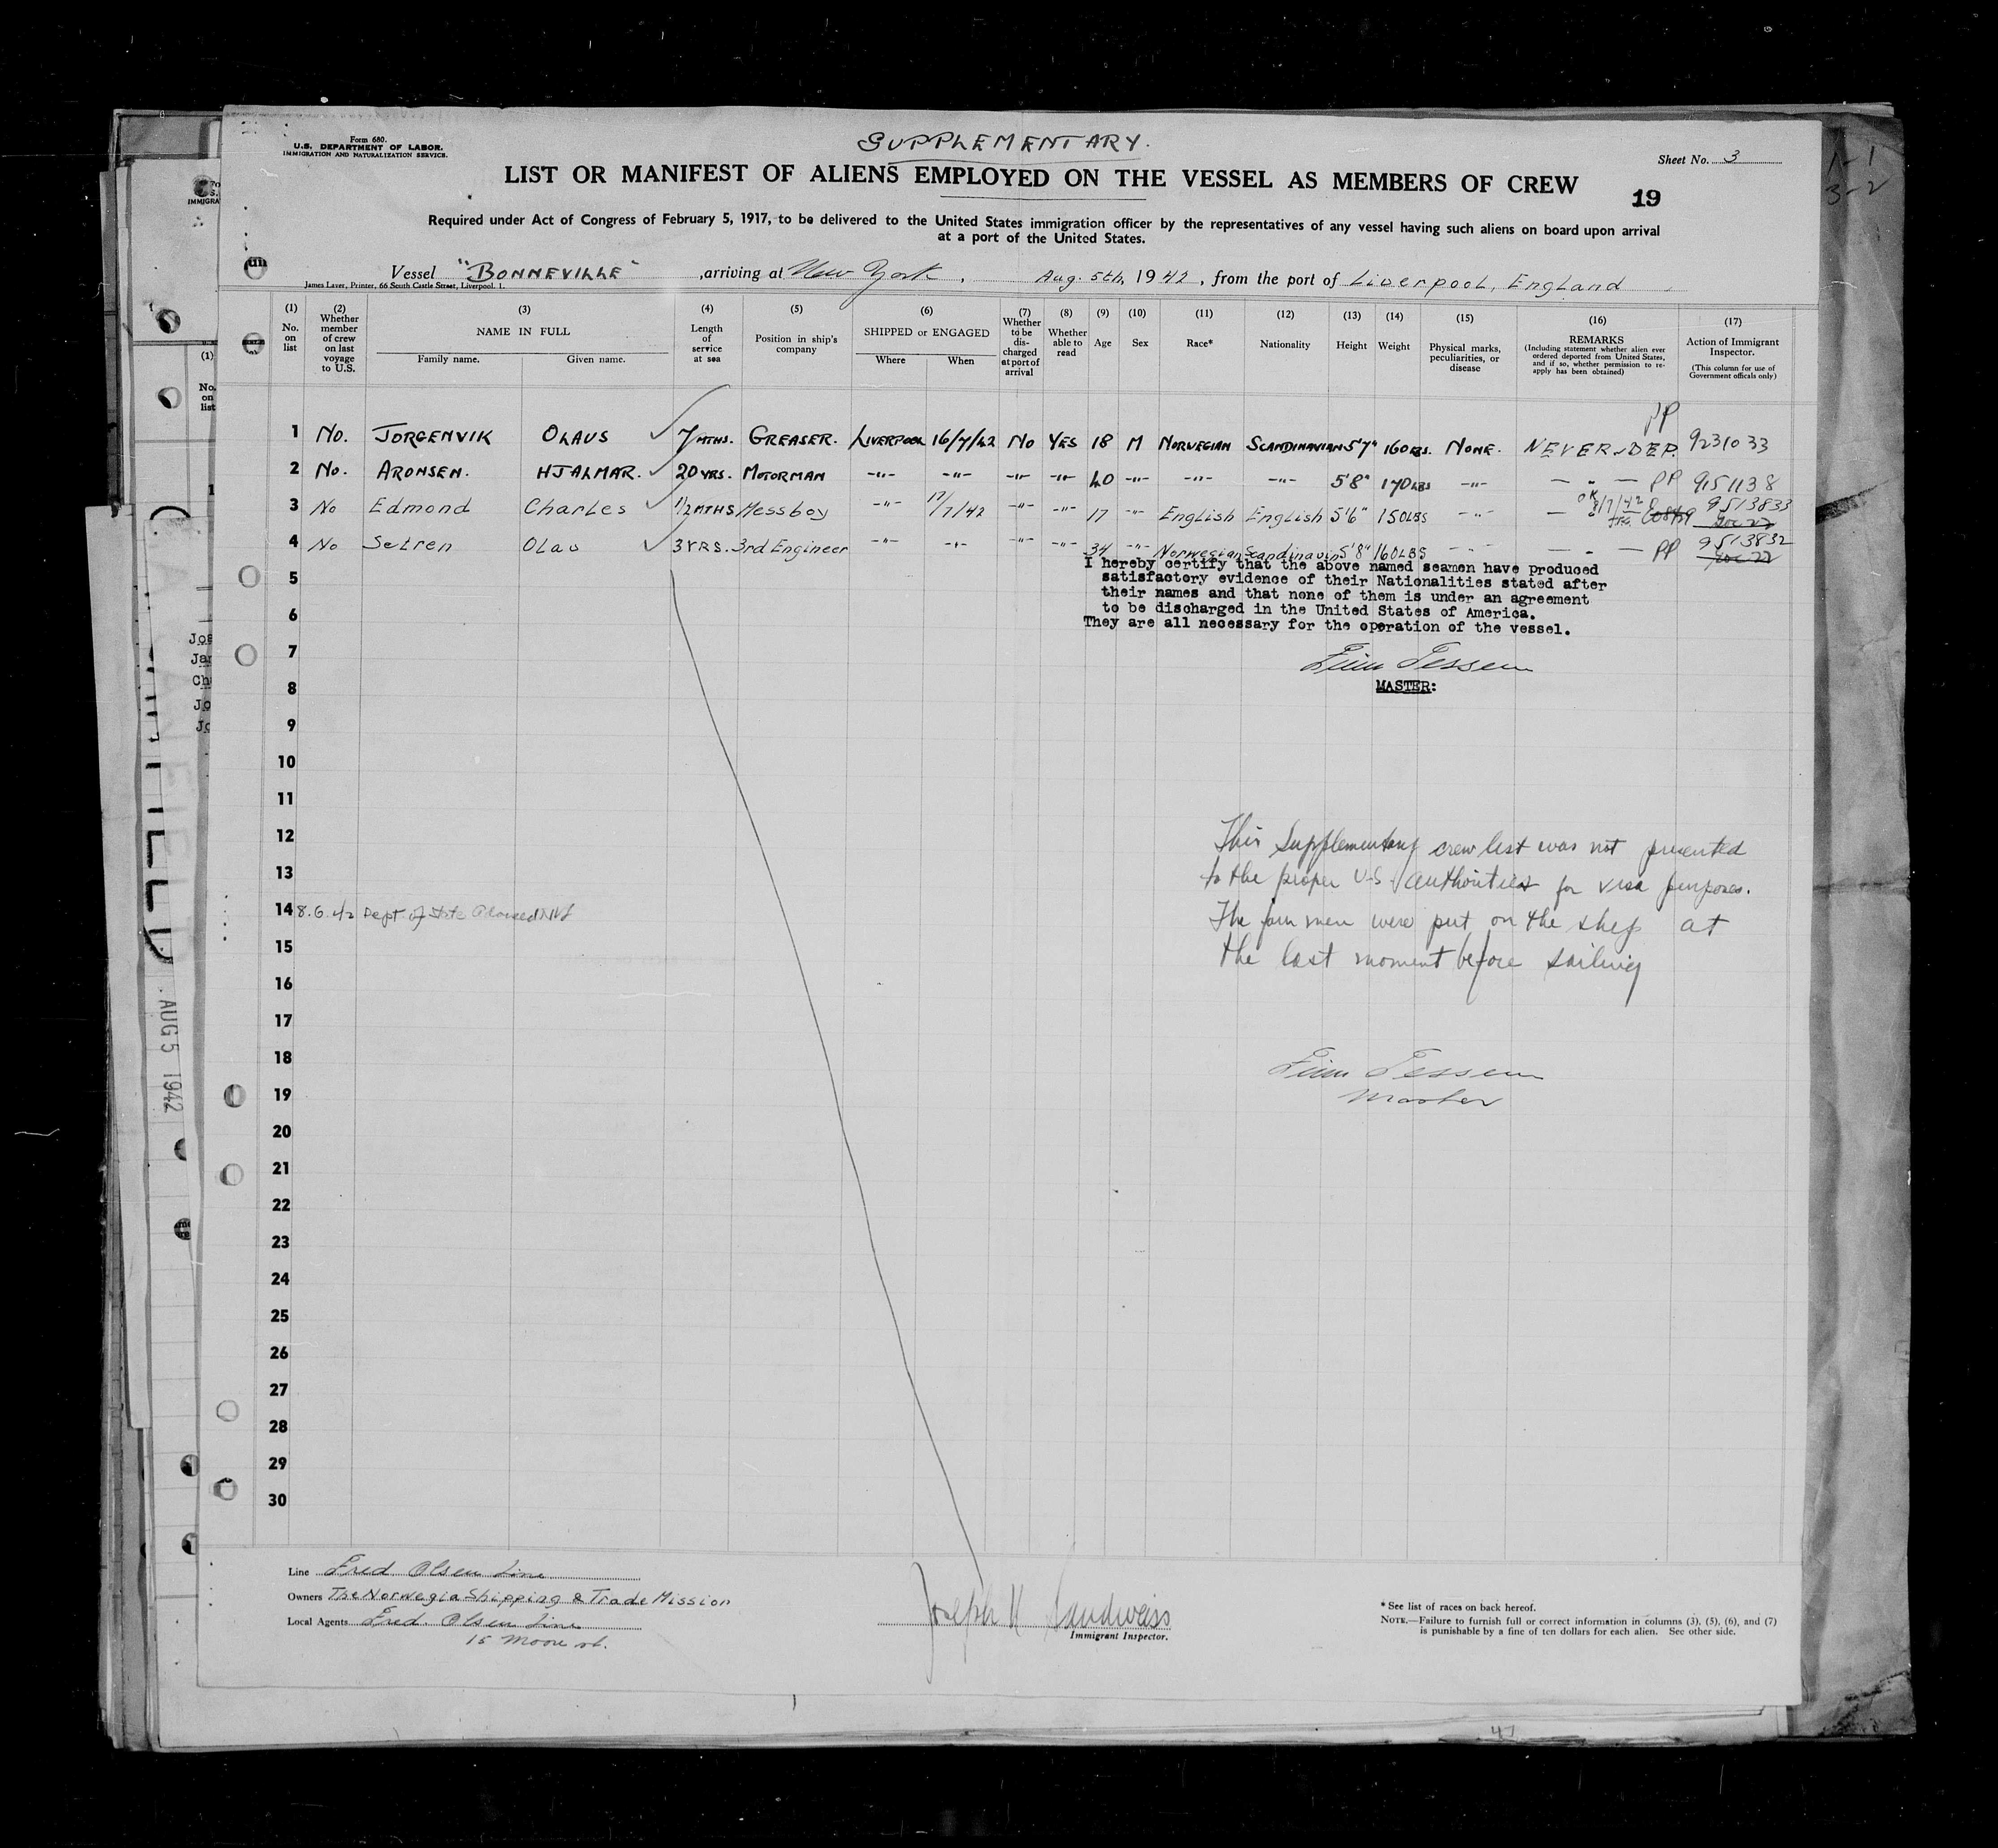 SUPPLEMENTARY.
Form 680.
U.S. DEPARTMENT OF LABOR.
IMMIGRATION AND NATURALIZATION SERVICE.
Sheet No. 3
LIST OR MANIFEST OF ALIENS EMPLOYED ON THE VESSEL AS MEMBERS OF CREW
19
Required under Act of Congress of February 5, 1917, to be delivered to the United States immigration officer by the representatives of any vessel having such aliens on board upon arrival
at a port of the United States.
Vessel "BONNEVILLE" , arriving at New York, Aug. 5th, 1942, from the port of Liverpool, England
James Laver, Printer, 66 South Castle Street, Liverpool. 1.
(1) No. on list
(2) Whether member of crew on last voyage to U.S.
(3) NAME IN FULL Family name. Given name.
(4) Length of service at sea
(5) Position in ship's company
(6) SHIPPED or ENGAGED Where When
(7) Whether to be discharged at port of arrival
(8) Whether able to read
(9) Age
(10) Sex
(11) Race*
(12) Nationality
(13) Height
(14) Weight
(15) Physical marks, peculiarities, or disease
(16) REMARKS (Including statement whether alien ever ordered deported from United States, and if so, whether permission to re-apply has been obtained)
(17) Action of Immigrant Inspector. (This column for use of Government officials only)
PP
1 No. JORGENVIK OLAUS 7 MTHS. GREASER. LIVERPOOL 16/7/42 NO YES 18 M NORWEGIAN SCANDINAVIAN 5'7" 160 LBS. NONE. NEVER DEP. 9231033
2 No. ARONSEN. HJALMAR. 20 YRS. MOTORMAN -"- -"- -"- -"- 40 -"- -"- -"- 5'8" 170 LBS -"- — " — PP 9151138
3 No Edmond Charles 1/2 MTHS Messboy -"- 17/7/42 -"- -"- 17 -"- English English 5'6" 150 LBS -"- — OK 8/7/42 9513833
4 No Setren Olav 3 YRS. 3rd Engineer -"- -"- -"- -"- 34 -"- Norwegian Scandinavin 5'8" 160 LBS -"- — " — PP 9513832
I hereby certify that the above named seamen have produced
satisfactory evidence of their Nationalities stated after
their names and that none of them is under an agreement
to be discharged in the United States of America.
They are all necessary for the operation of the vessel.
MASTER:
5
6
7
8
9
10
11
12
13
14 8.6.42 Dept of State
15
16
17
18
19
20
21
22
23
24
25
26
27
28
29
30
This Supplementary crew list was not presented
to the proper U.S. authorities for visa purposes.
The four men were put on the ship at
the last moment before sailing
Master
Line Fred Olsen Line
Owners The Norwegia Shipping & Trade Mission
Local Agents Fred. Olsen Line
15 Moore st.
Joseph H Sandweiss
Immigrant Inspector.
* See list of races on back hereof.
NOTE.—Failure to furnish full or correct information in columns (3), (5), (6), and (7)
is punishable by a fine of ten dollars for each alien. See other side.
AUG 5 1942
1-1
3-2
47